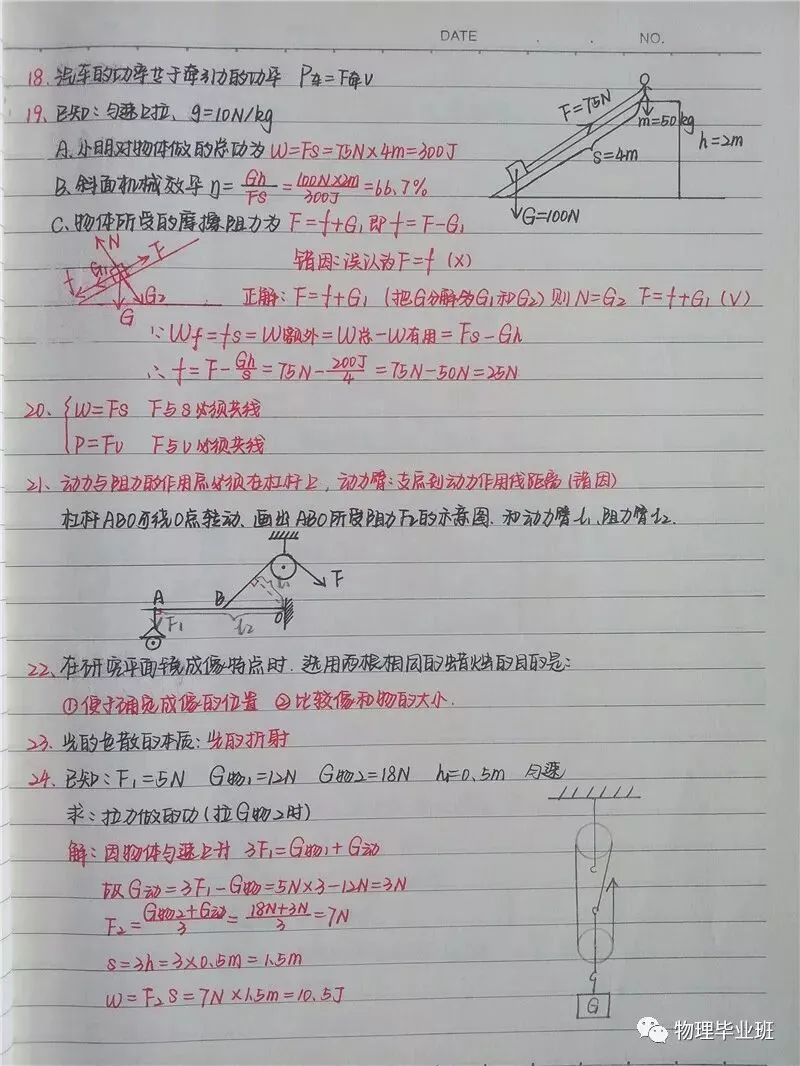 DATE . . NO.
18、汽车的功率等于牵引力的功率 P车=F牵v
19、已知:匀速上拉、g=10N/kg
F=75N
m=50kg
h=2m
s=4m
G=100N
A.小明对物体做的总功为 W=FS=75N×4m=300J
B.斜面机械效率 η=Gh/FS=100N×2m/300J=66.7%
C、物体所受的摩擦阻力为 F=f+G₁即f=F-G₁
N
F
f
G₁
G₂
G
错因:误认为F=f (×)
正解:F=f+G₁ (把G分解为G₁和G₂) 则N=G₂ F=f+G₁(√)
∵Wf=fs=W额外=W总-W有用=Fs-Gh
∴f=F-Gh/s=75N-200J/4=75N-50N=25N
20、{W=FS F与S必须共线
P=Fv F与v必须共线
21、动力与阻力的作用点必须在杠杆上,动力臂:支点到动力作用线距离(错因)
杠杆ABO可绕O点转动、画出ABO所受阻力F₂的示意图、和动力臂l₁、阻力臂l₂.
A
B
O
F
F₁
l₁
l₂
22、在研究平面镜成像特点时.选用两根相同的蜡烛的目的是:
①便于确定成像的位置 ②比较像和物的大小.
23、光的色散的本质:光的折射
24、已知:F₁=5N G物₁=12N G物₂=18N h=0.5m 匀速
求:拉力做的功(拉G物₂时)
解:因物体匀速上升 3F₁=G物₁+G动
故G动=3F₁-G物=5N×3-12N=3N
F₂=G物₂+G动/3=18N+3N/3=7N
s=3h=3×0.5m=1.5m
W=F₂S=7N×1.5m=10.5J
G
物理毕业班